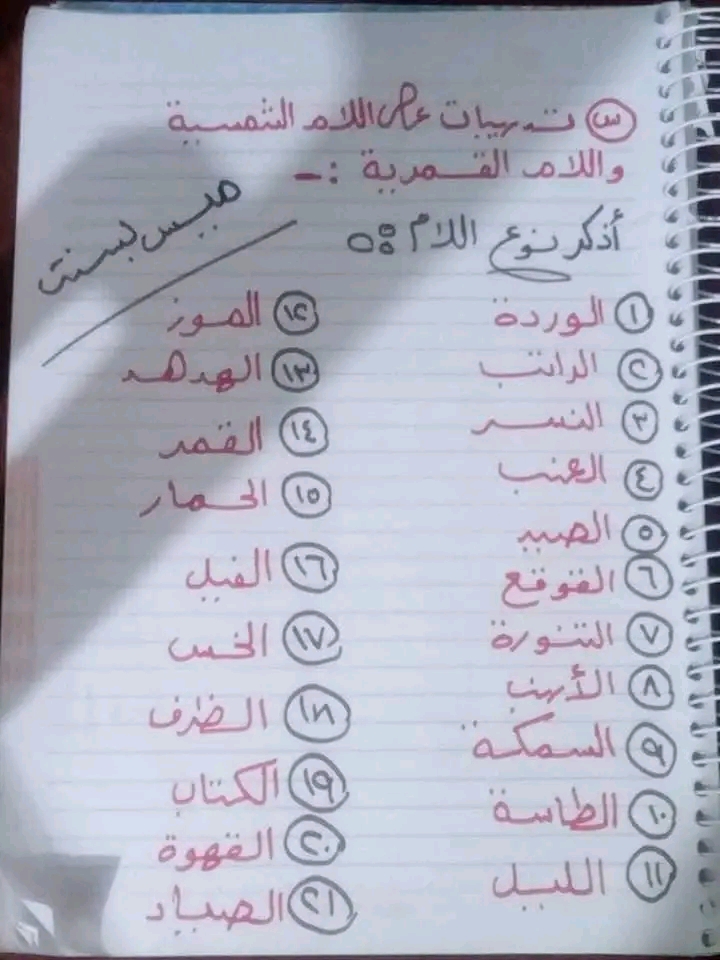 س تدريبات على اللام الشمسية
واللام القمرية :-
ميس بسنت
أذكر نوع اللام :
١ الوردة
٢ الراتب
٣ النسر
٤ العنب
٥
٦ القوقع
٧ التنورة
٨ الأرنب
٩ السمكة
١٠ الطاسة
١١ الليل
١٢ الموز
١٣ الهدهد
١٤ القمر
١٥ الحمار
١٦ الفيل
١٧ الخس
١٨ الظرف
١٩ الكتاب
٢٠ القهوة
٢١ الصياد